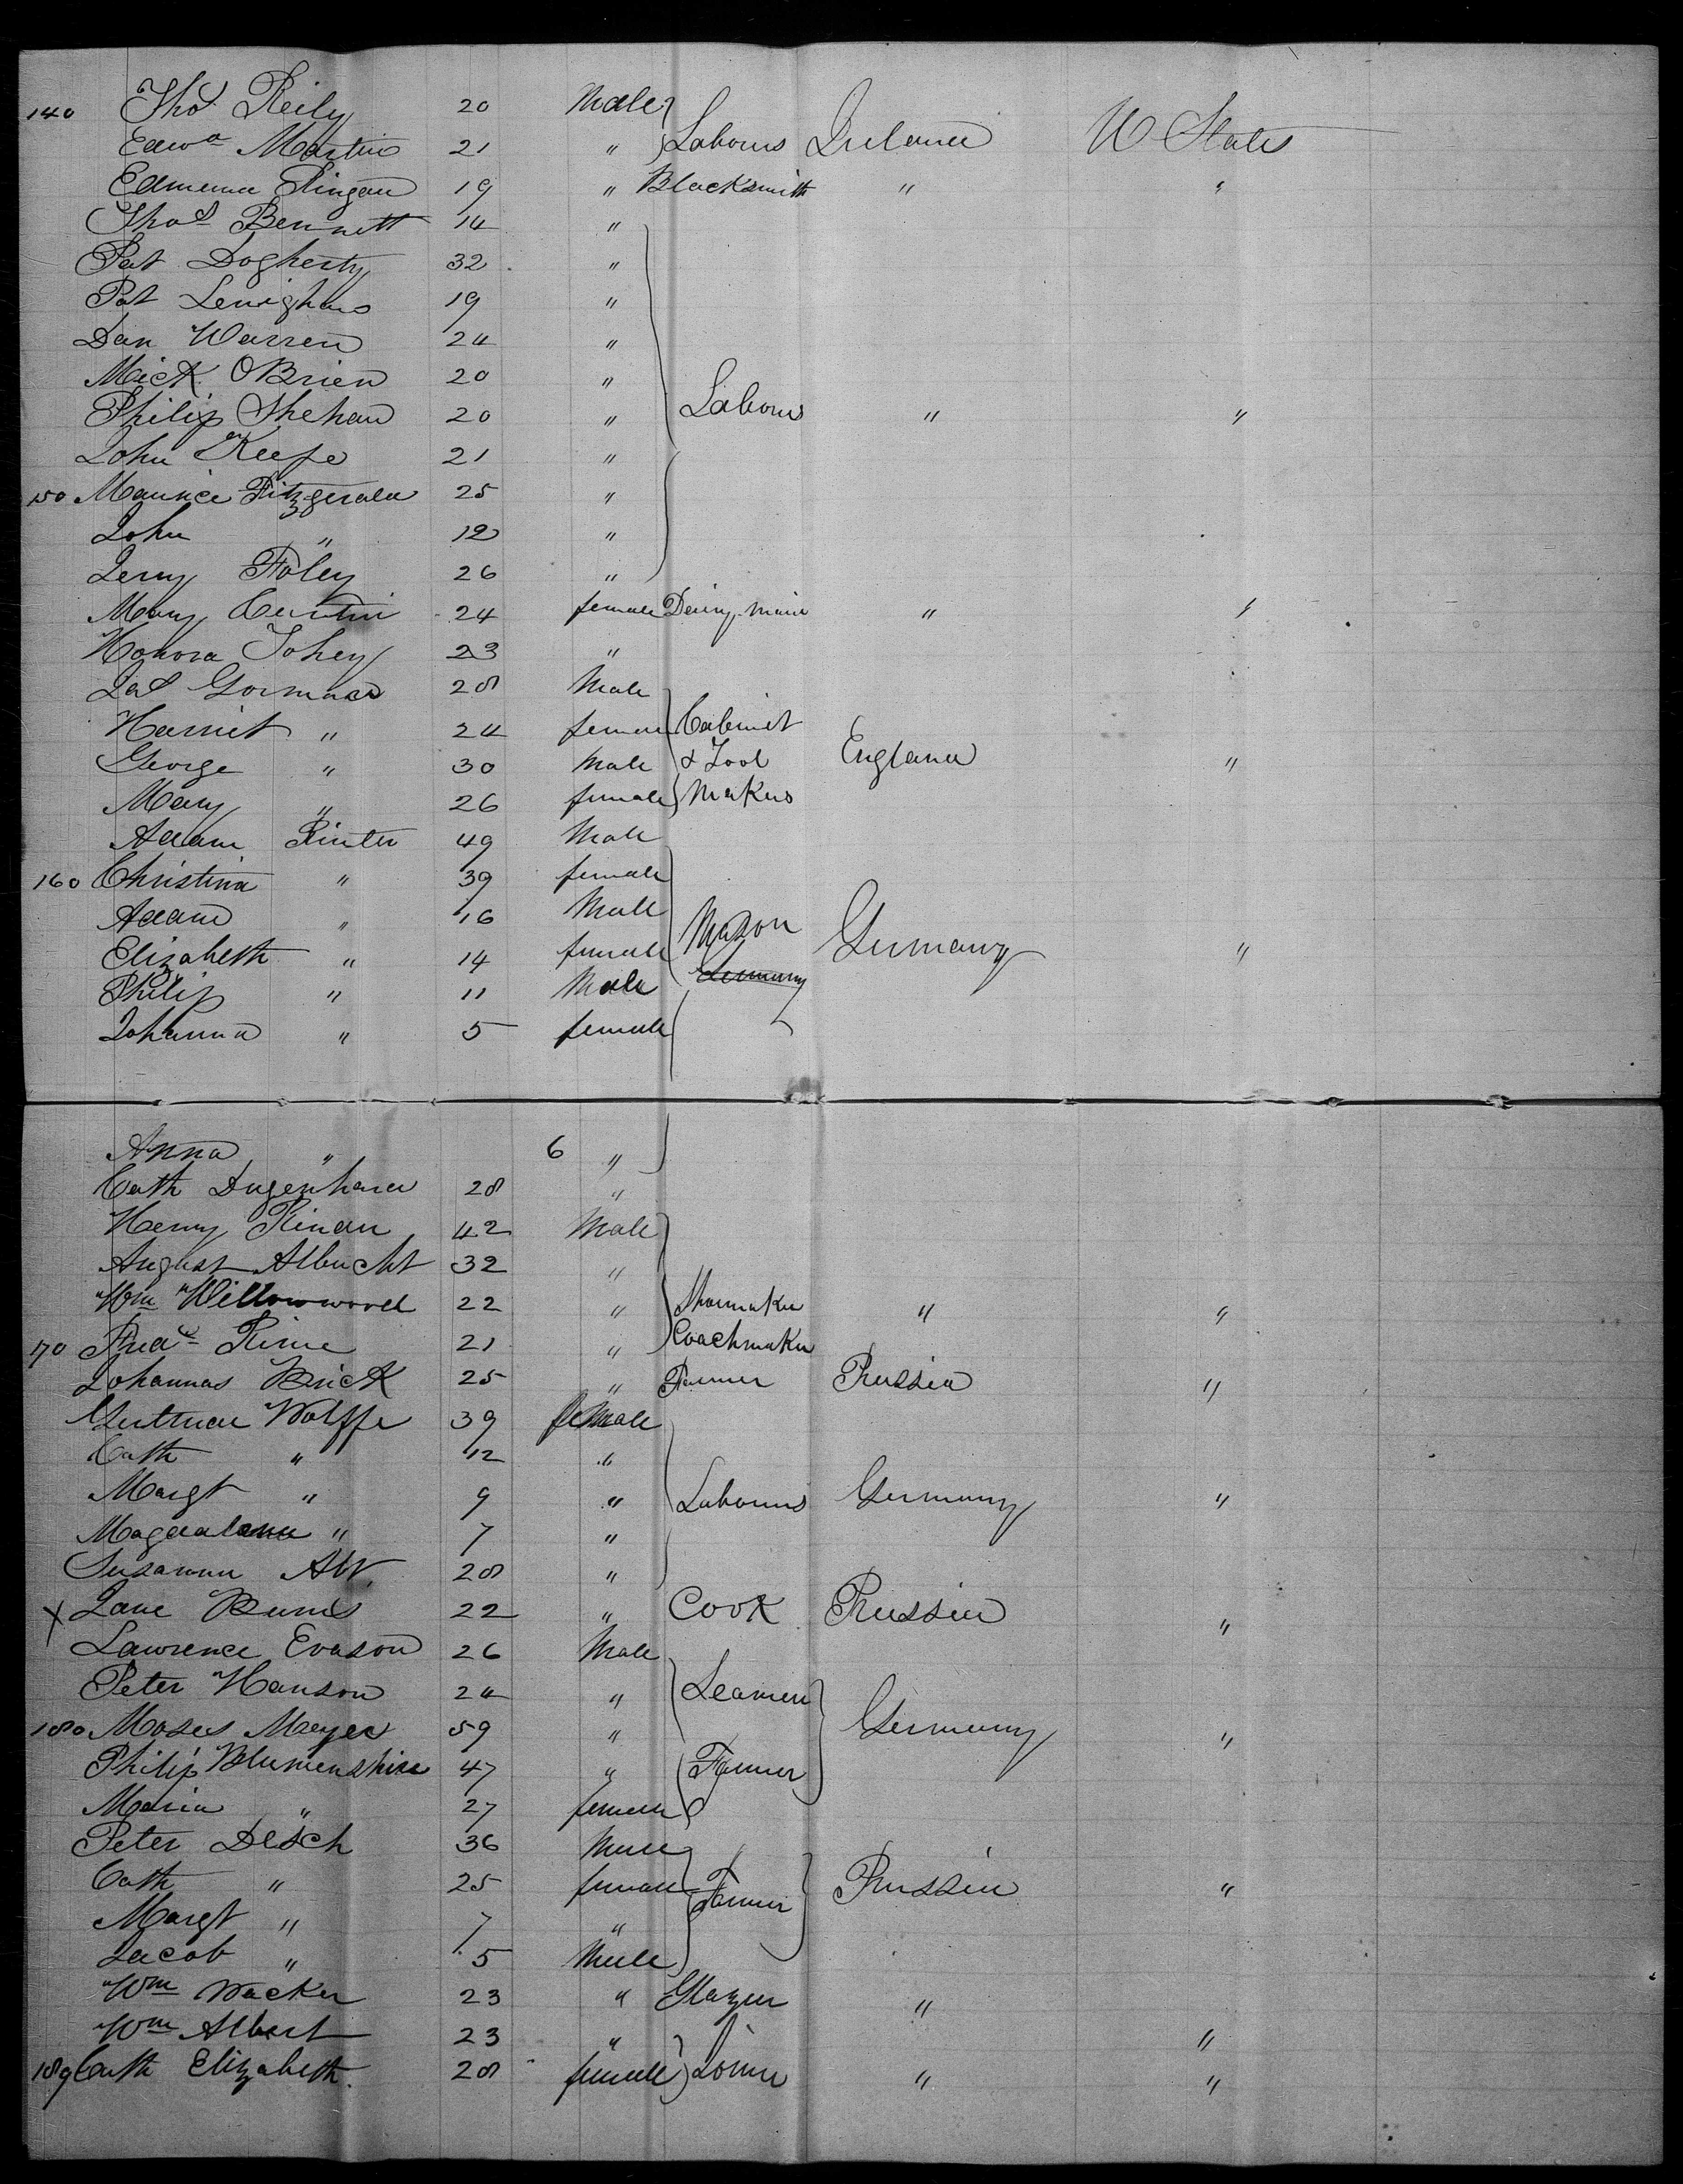 140 Thos Reily 20 Male
Edwd Martin 21 " Labours Ireland U States
Edmund Ringan 19 " Blacksmith " "
Thos Bennett 14 "
Pat Dogherty 32 "
Pat Lenighan 19 "
Dan Warren 24 "
Mick O Brien 20 "
Philip Shehan 20 " Labours " "
John Keefe 21 "
150 Maurice Fitzgerald 25 "
John " 12 "
Jerry Foley 26 "
Mary Curtin 24 female Dairy maid " "
Honora Tohey 23 "
Jas Gorman 28 Male
Harriet " 24 female Cabinet
George " 30 Male & Tool England "
Mary " 26 female Makers
Adam Rinter 49 Male
160 Christina " 39 female
Adam " 16 Male
Elizabeth " 14 female Mason Germany "
Philip " 11 Male Germany
Johanna " 5 female
Anna " 6 "
Cath Dugenhard 28 "
Henry Rinan 42 Male
August Albricht 32 "
Wm Willowwood 22 " Shoemaker " "
170 Fredk Rime 21 " Coachmaker
Johannas Brick 25 " Farmer Prussia "
Gertrude Wolffe 39 female
Cath " 12 "
Margt " 9 " Labourers Germany "
Magdalana " 7 "
Susanna Alt 28 "
X Jane Burns 22 " Cook Prussia "
Lawrence Evason 26 Male
Peter Hanson 24 " Seamen
180 Moses Mayer 59 " Germany "
Philip Blumenshire 47 " Farmer
Maria " 27 female
Peter Desch 36 Male
Cath " 25 female Farmer Prussia "
Margt " 7 "
Jacob " 5 Male
Wm Wacker 23 " Glazier "
Wm Albert 23 " "
189 Cath Elizabeth 28 female Joiner " "